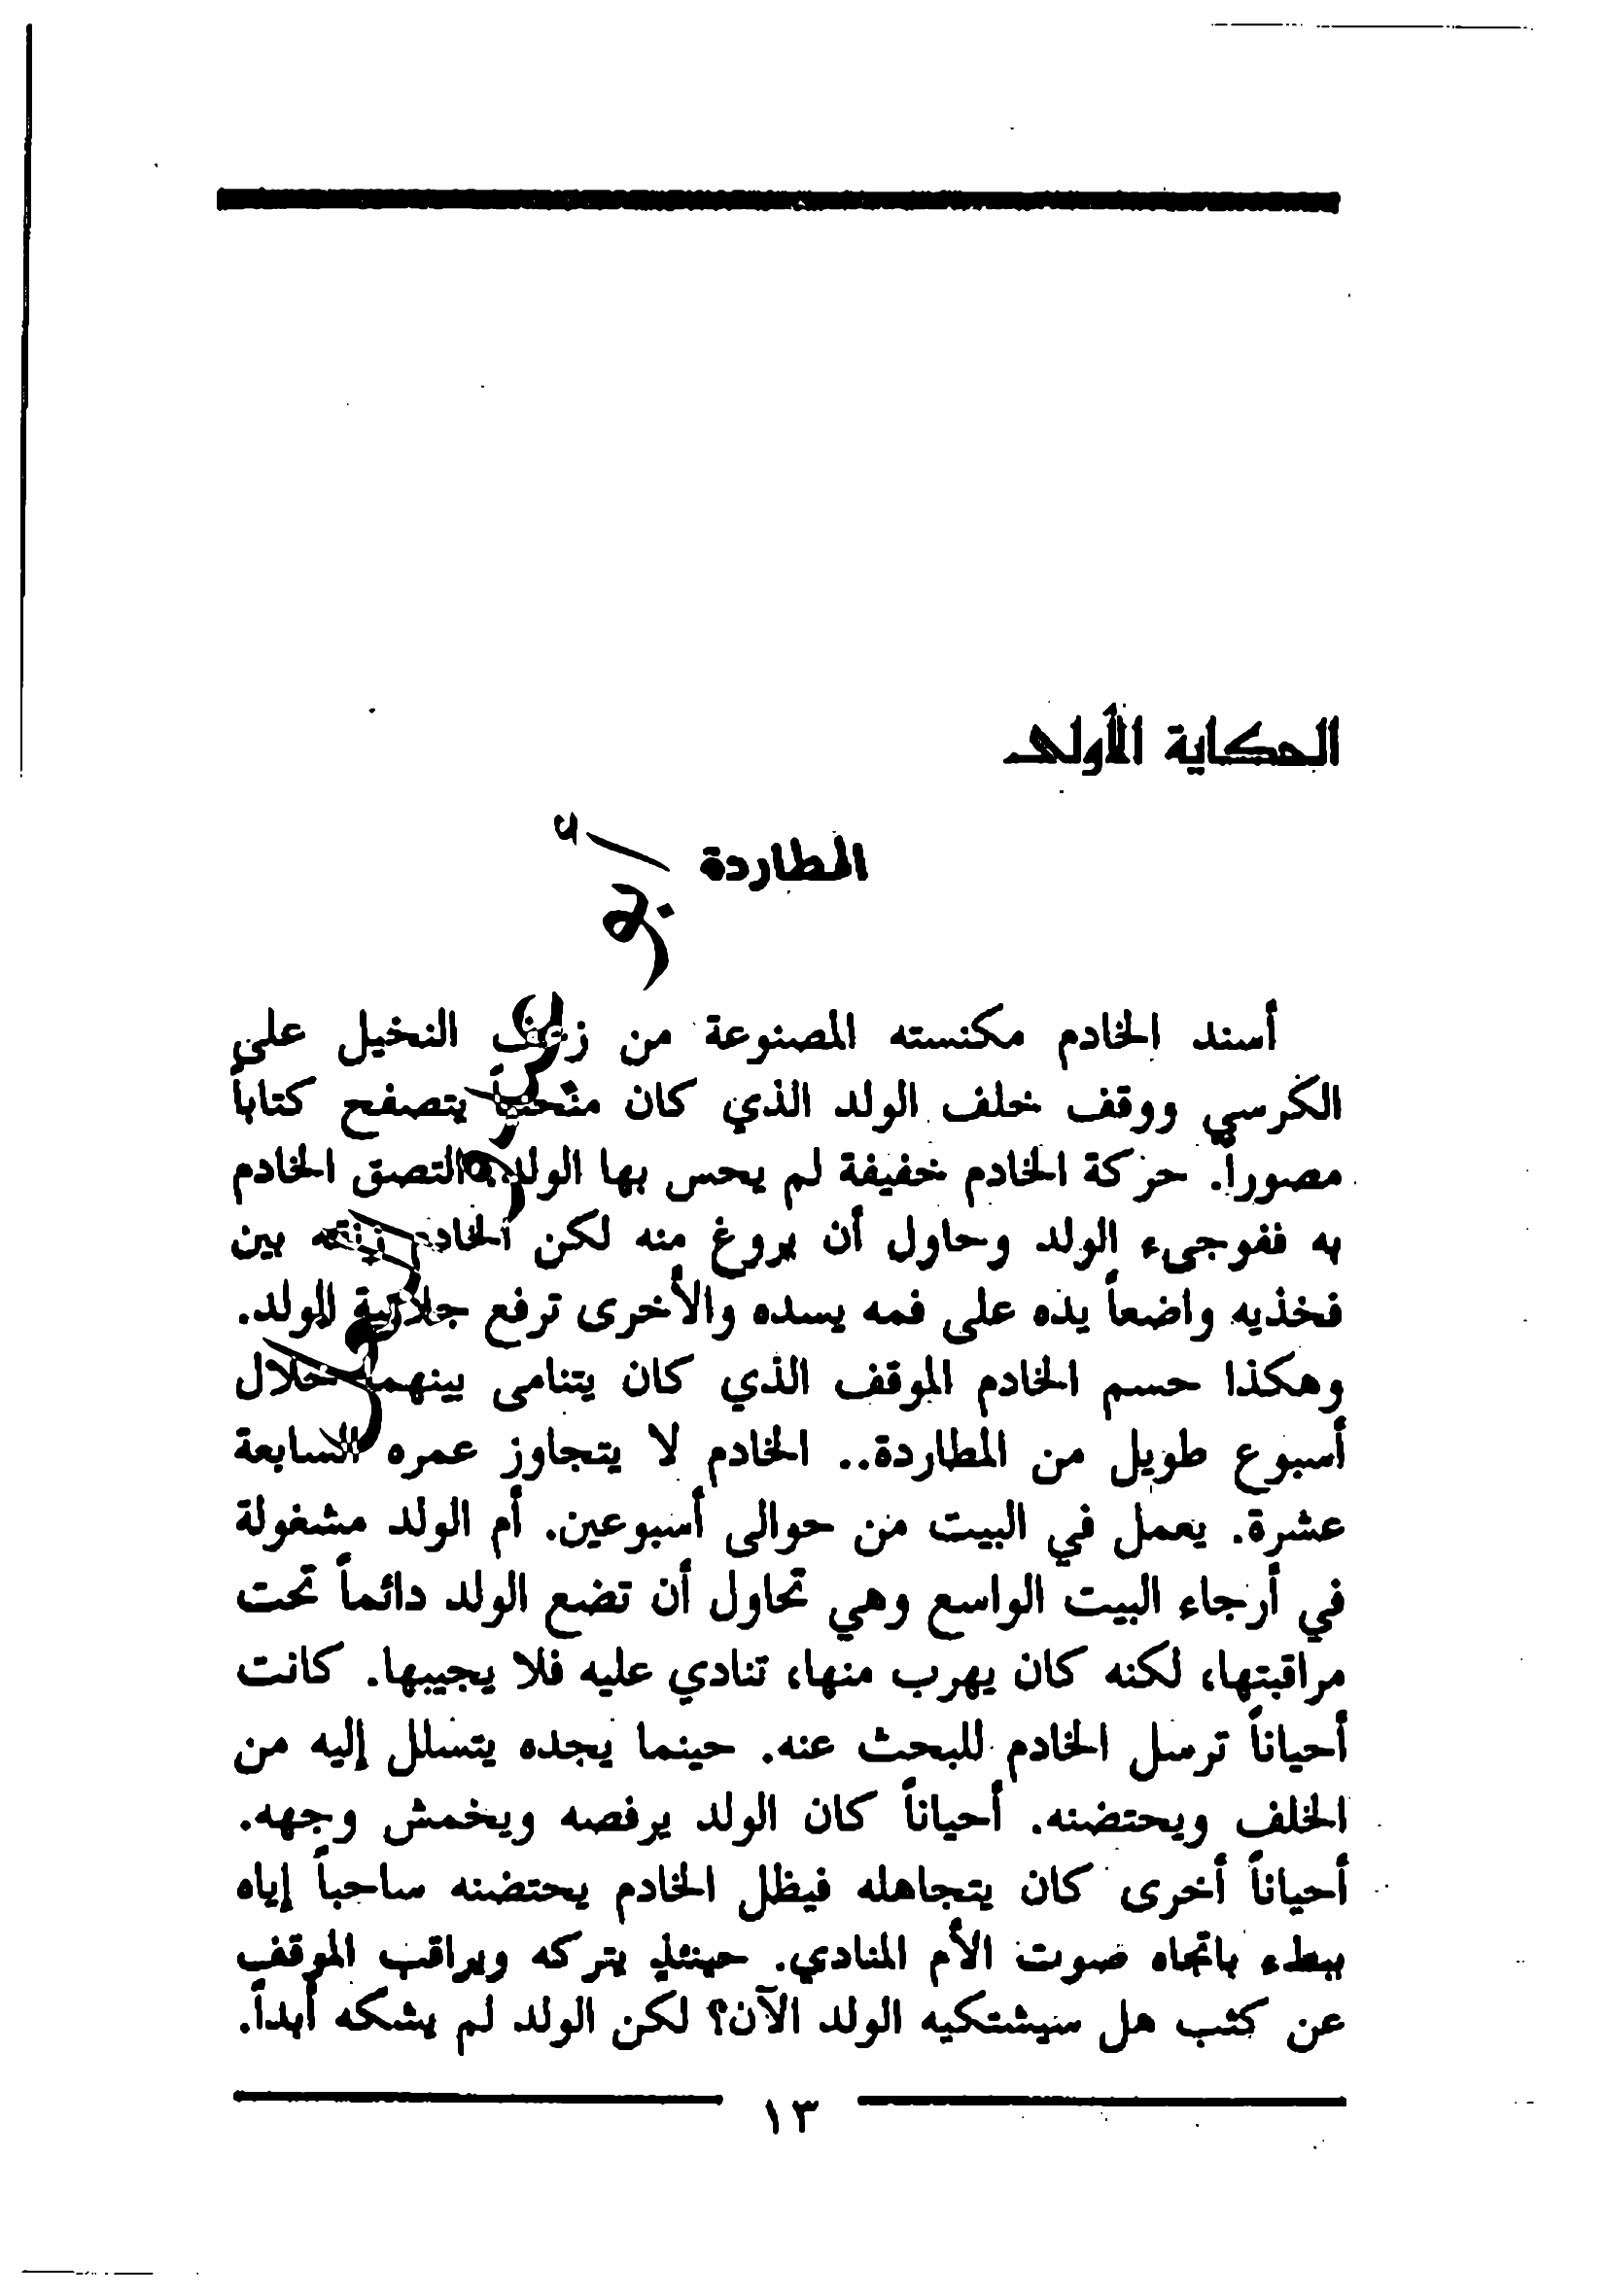 الحكاية الأولى
المطاردة
أسند الخادم مكنسته المصنوعة من زعف النخيل على
الكرسي ووقف خلف الولد الذي كان منحنياً يتصفح كتاباً
مصوراً. حركة الخادم خفيفة لم يحس بها الولد. التصق الخادم
به ففوجىء الولد وحاول أن يروغ منه لكن الخادم بين
فخذيه واضعاً يده على فمه يسده والأخرى ترفع جلابية الولد.
وهكذا حسم الخادم الموقف الذي كان يتنامى بينهما خلال
أسبوع طويل من المطاردة.. الخادم لا يتجاوز عمره السابعة
عشرة. يعمل في البيت من حوالى أسبوعين. أم الولد مشغولة
في أرجاء البيت الواسع وهي تحاول أن تضع الولد دائماً تحت
مراقبتها، لكنه كان يهرب منها، تنادي عليه فلا يجيبها. كانت
أحياناً ترسل الخادم للبحث عنه. حينما يجده يتسلل إليه من
الخلف ويحتضنه. أحياناً كان الولد يرفصه ويخمش وجهه.
أحياناً أخرى كان يتجاهله فيظل الخادم يحتضنه ساحباً إياه
ببطء باتجاه صوت الأم المنادي. حينئذٍ يتركه ويراقب الموقف
عن كثب هل سيشتكيه الولد الآن؟ لكن الولد لم يشكه أبداً.
١٣